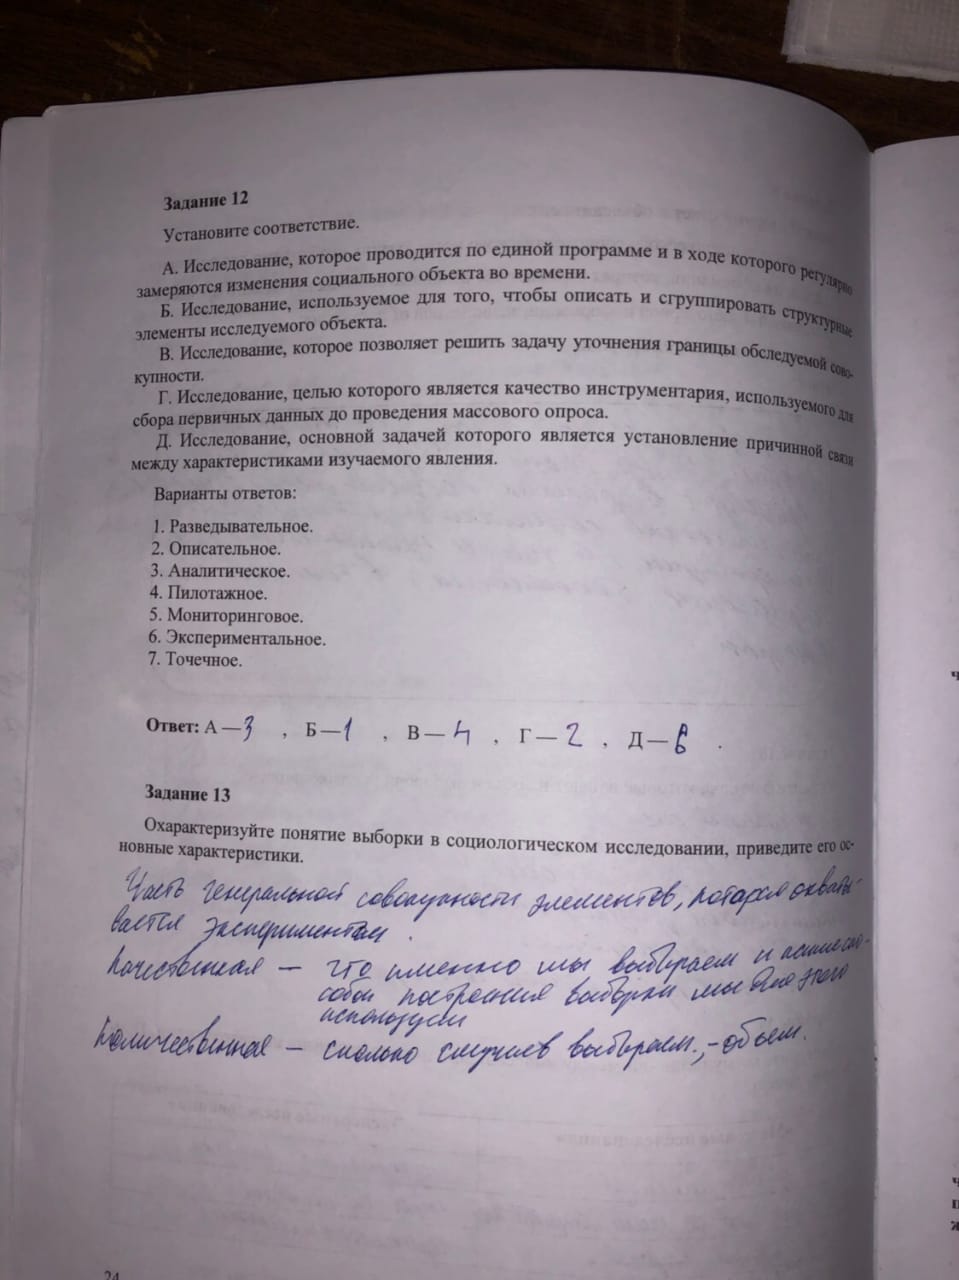 Задание 12
Установите соответствие.
А. Исследование, которое проводится по единой программе и в ходе которого регулярно
замеряются изменения социального объекта во времени.
Б. Исследование, используемое для того, чтобы описать и сгруппировать структурные
элементы исследуемого объекта.
В. Исследование, которое позволяет решить задачу уточнения границы обследуемой сово-
купности.
Г. Исследование, целью которого является качество инструментария, используемого для
сбора первичных данных до проведения массового опроса.
Д. Исследование, основной задачей которого является установление причинной связи
между характеристиками изучаемого явления.
Варианты ответов:
1. Разведывательное.
2. Описательное.
3. Аналитическое.
4. Пилотажное.
5. Мониторинговое.
6. Экспериментальное.
7. Точечное.
Ответ: А — 3 , Б — 1 , В — 4 , Г — 2 , Д — 6 .
Задание 13
Охарактеризуйте понятие выборки в социологическом исследовании, приведите его ос-
новные характеристики.
Часть генеральной совокупности элементов, которая охваты-
вается экспериментом.
Качественная – что именно мы выбираем и какие спо-
собы построения выборки мы для этого
используем
Количественная – сколько случаев выбираем, - объем.
24